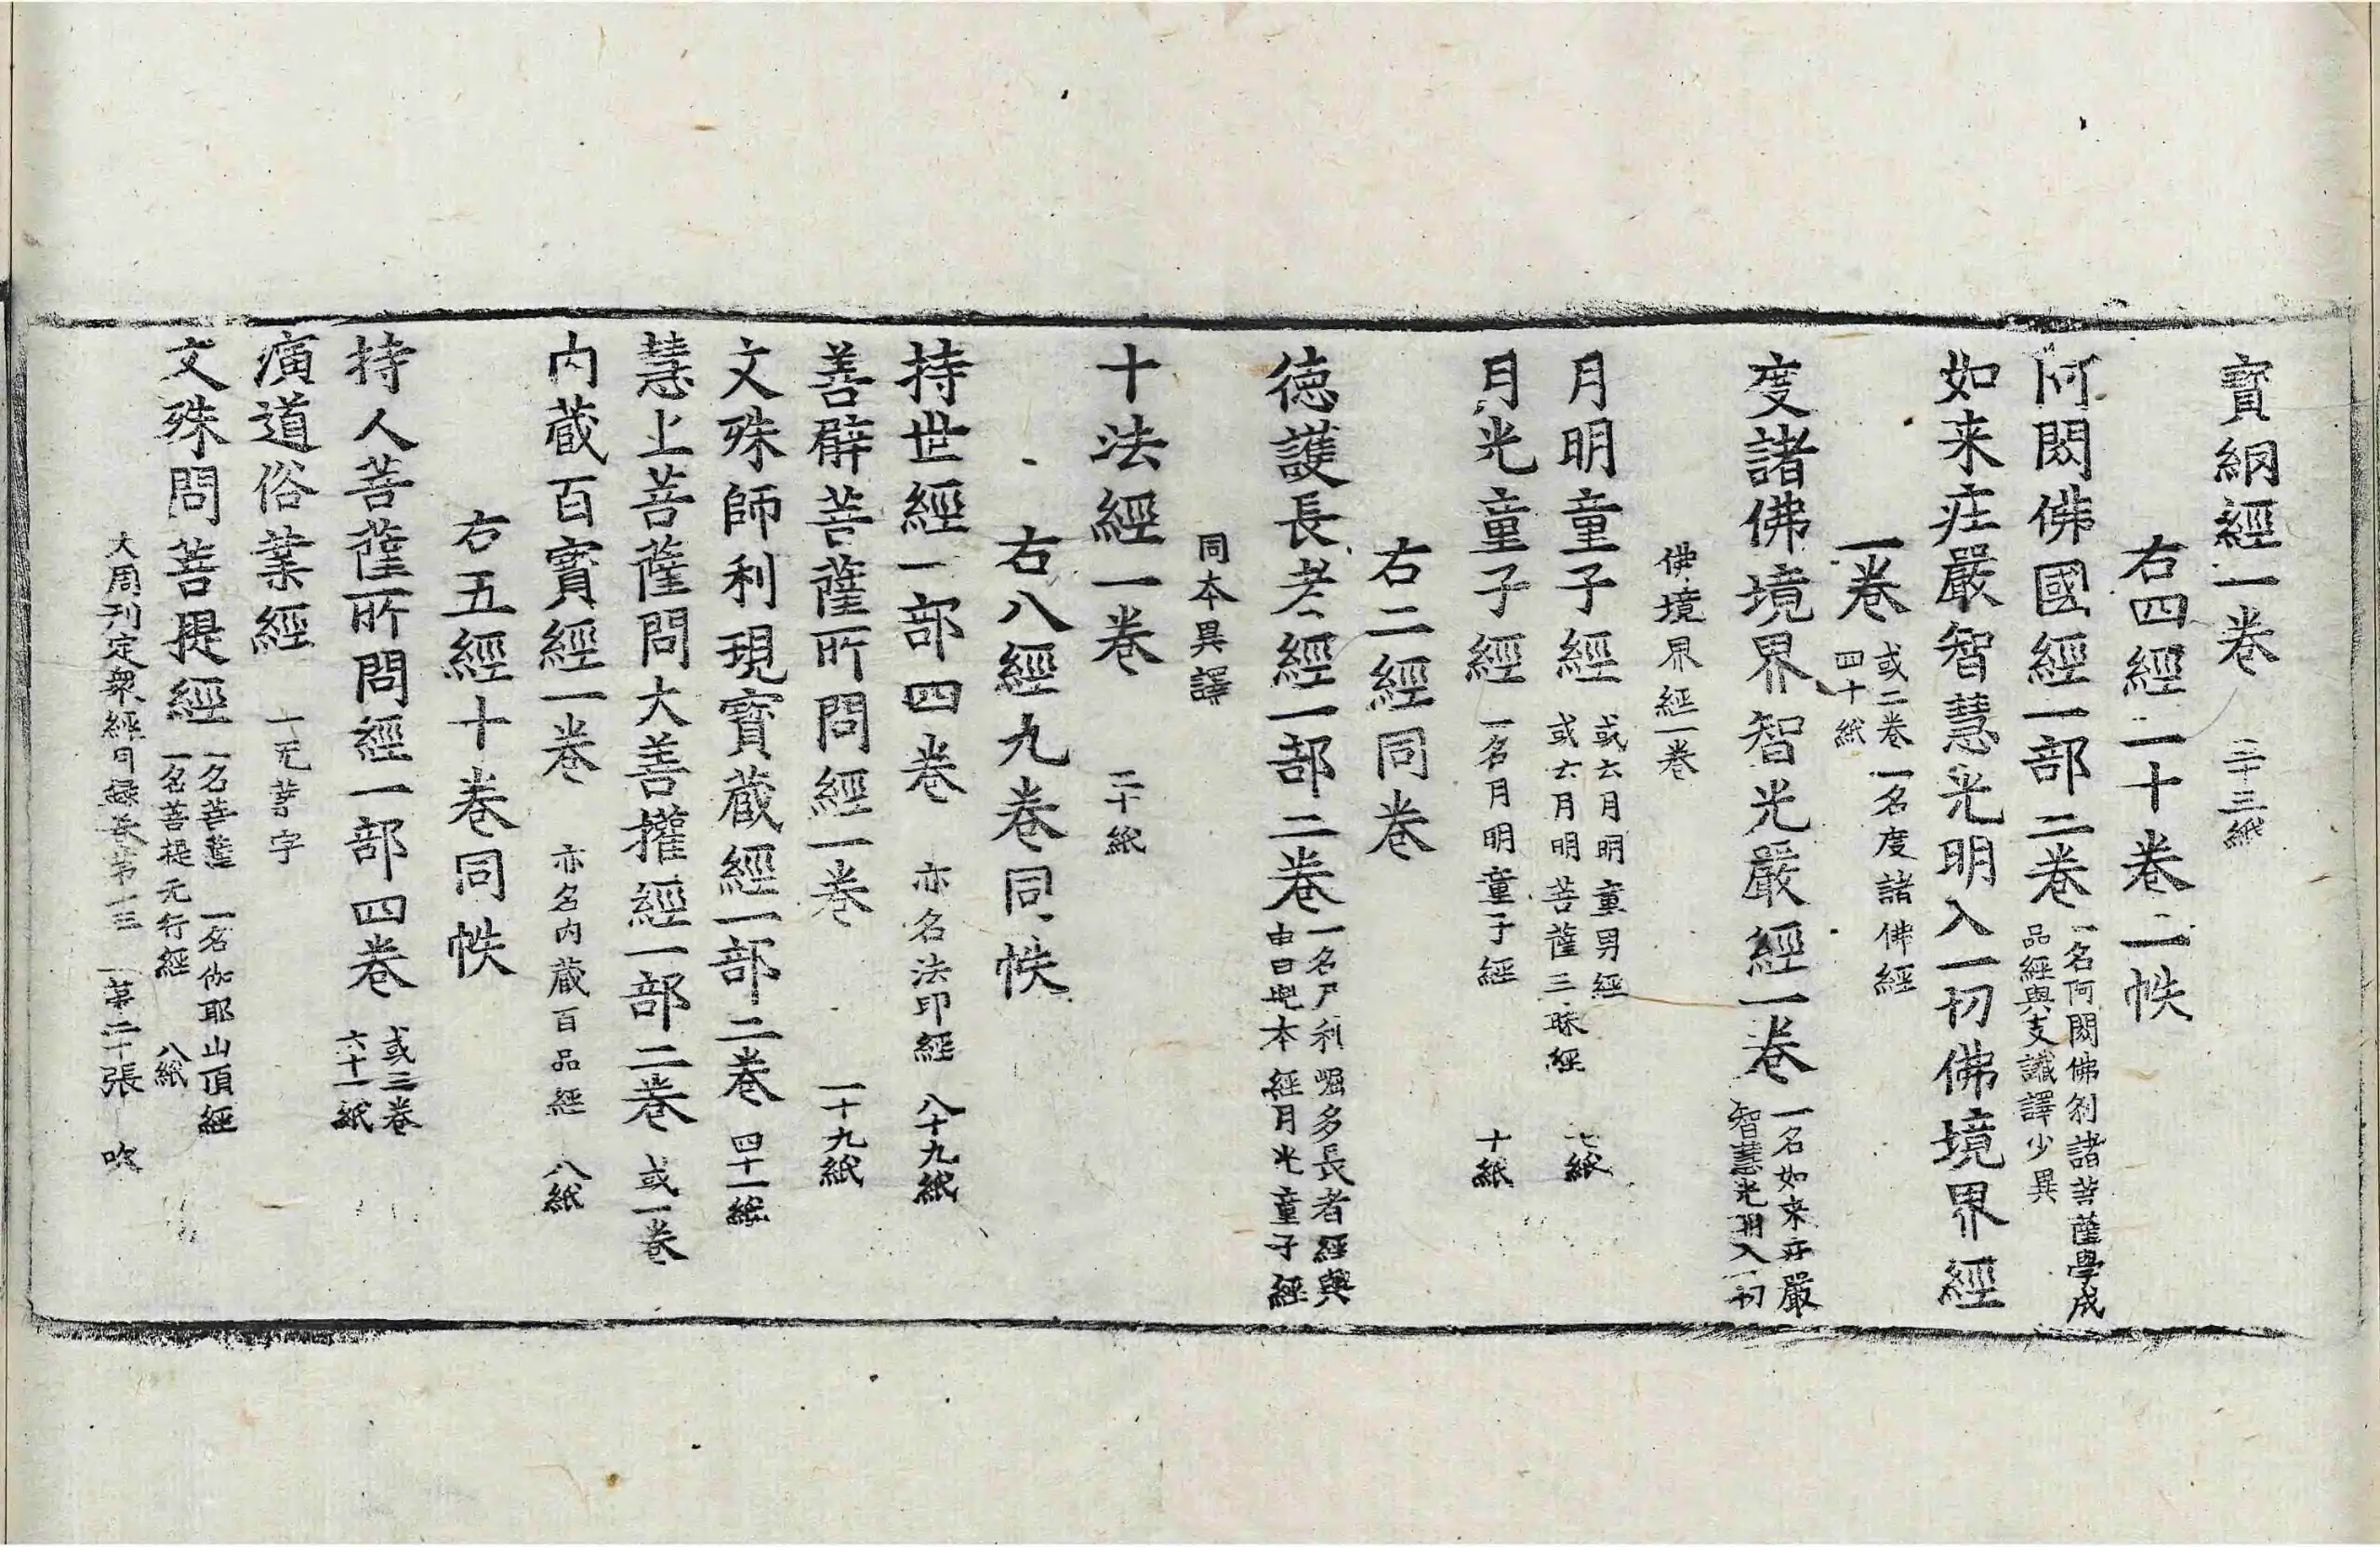 寳網經一卷 二十三紙
右四經二十卷二帙
阿閦佛國經一部二卷 一名阿閦佛刹諸菩薩學成品經與支讖譯少異
如来庄嚴智慧光明入一切佛境界經
一卷 或二卷一名度諸佛經四十紙
度諸佛境界智光嚴經一卷 一名如来庄嚴智慧光明入一切
佛境界經一卷
月明童子經 或六月明童男經或六月明菩薩三昧經 七紙
月光童子經 一名月明童子經 十紙
右二經同卷
德護長者經一部二卷 一名尸利崛多長者經與申日兜本經月光童子經
同本異譯
十法經一卷 二十紙
右八經九卷同帙
持世經一部四卷 亦名法印經 八十九紙
善臂菩薩所問經二卷 一十九紙
文殊師利現寳蔵經一部二卷 四十一紙
慧上菩薩問大善攉經一部二卷 或一卷
内蔵百寳經一卷 亦名内蔵百品經 八紙
右五經十卷同帙
持人菩薩所問經一部四卷 或三卷六十一紙
演道俗業經 一无業字
文殊問菩提經 一名菩薩 一名伽耶山頂經一名菩提无行經 八紙
大周刊定衆經目録卷第十三 第二十張 吹